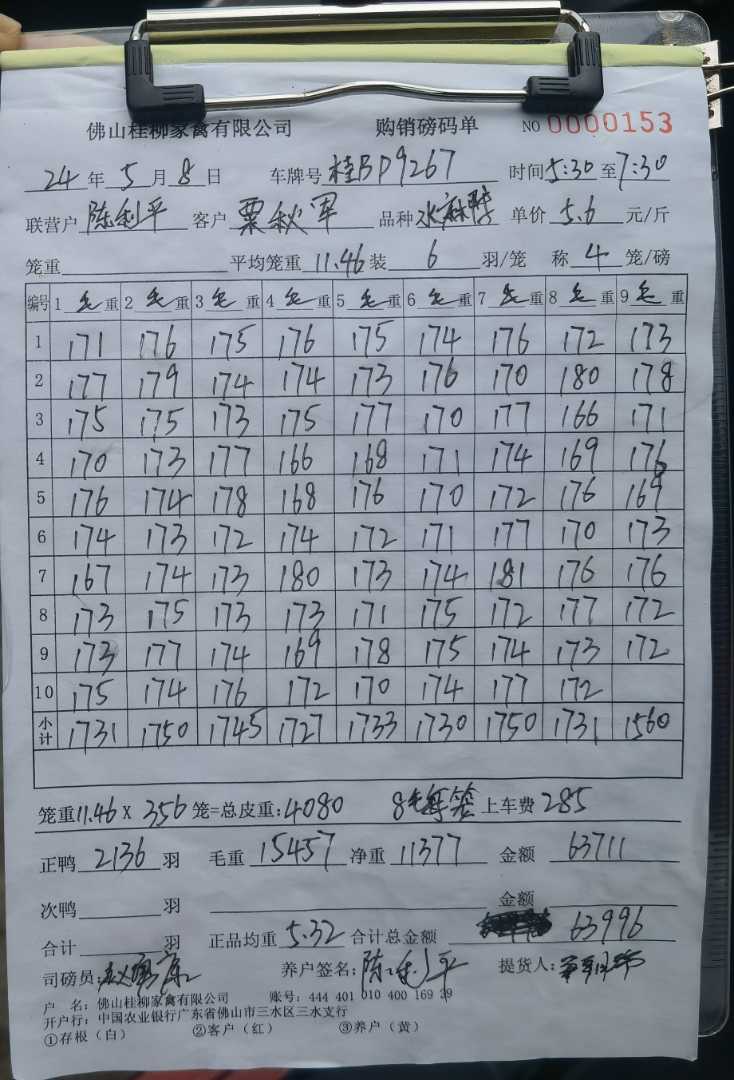 佛山桂柳家禽有限公司 购销磅码单 NO 0000153
24 年 5 月 8 日 车牌号 桂BD9267 时间 5:30 至 7:30
联营户 陈利平 客户 粟秋军 品种 水麻鸭 单价 5.6 元/斤
笼重 平均笼重 11.46 装 6 羽/笼 称 4 笼/磅
编号 1 毛 重 2 毛 重 3 毛 重 4 毛 重 5 毛 重 6 毛 重 7 毛 重 8 毛 重 9 毛 重
1 171 176 175 176 175 174 176 172 173
2 177 179 174 174 173 176 170 180 178
3 175 175 173 175 177 170 177 166 171
4 170 173 177 166 168 171 174 169 176
5 176 174 178 168 176 170 172 176 169
6 174 173 172 174 172 171 177 170 173
7 167 174 173 180 173 174 181 176 176
8 173 175 173 173 171 175 172 177 172
9 173 177 174 169 178 175 174 173 172
10 175 174 176 172 170 174 177 172
小计 1731 1750 1745 1727 1733 1730 1750 1731 1560
笼重 11.46 X 356 笼=总皮重: 4080 8毛每笼 上车费 285
正鸭 2136 羽 毛重 15457 净重 11377 金额 63711
次鸭 羽 金额
合计 羽 正品均重 5.32 合计总金额 63996
司磅员: 养户签名: 陈利平 提货人:
户 名: 佛山桂柳家禽有限公司 账号: 444 401 010 400 169 39
开户行: 中国农业银行广东省佛山市三水区三水支行
①存根（白） ②客户（红） ③养户（黄）